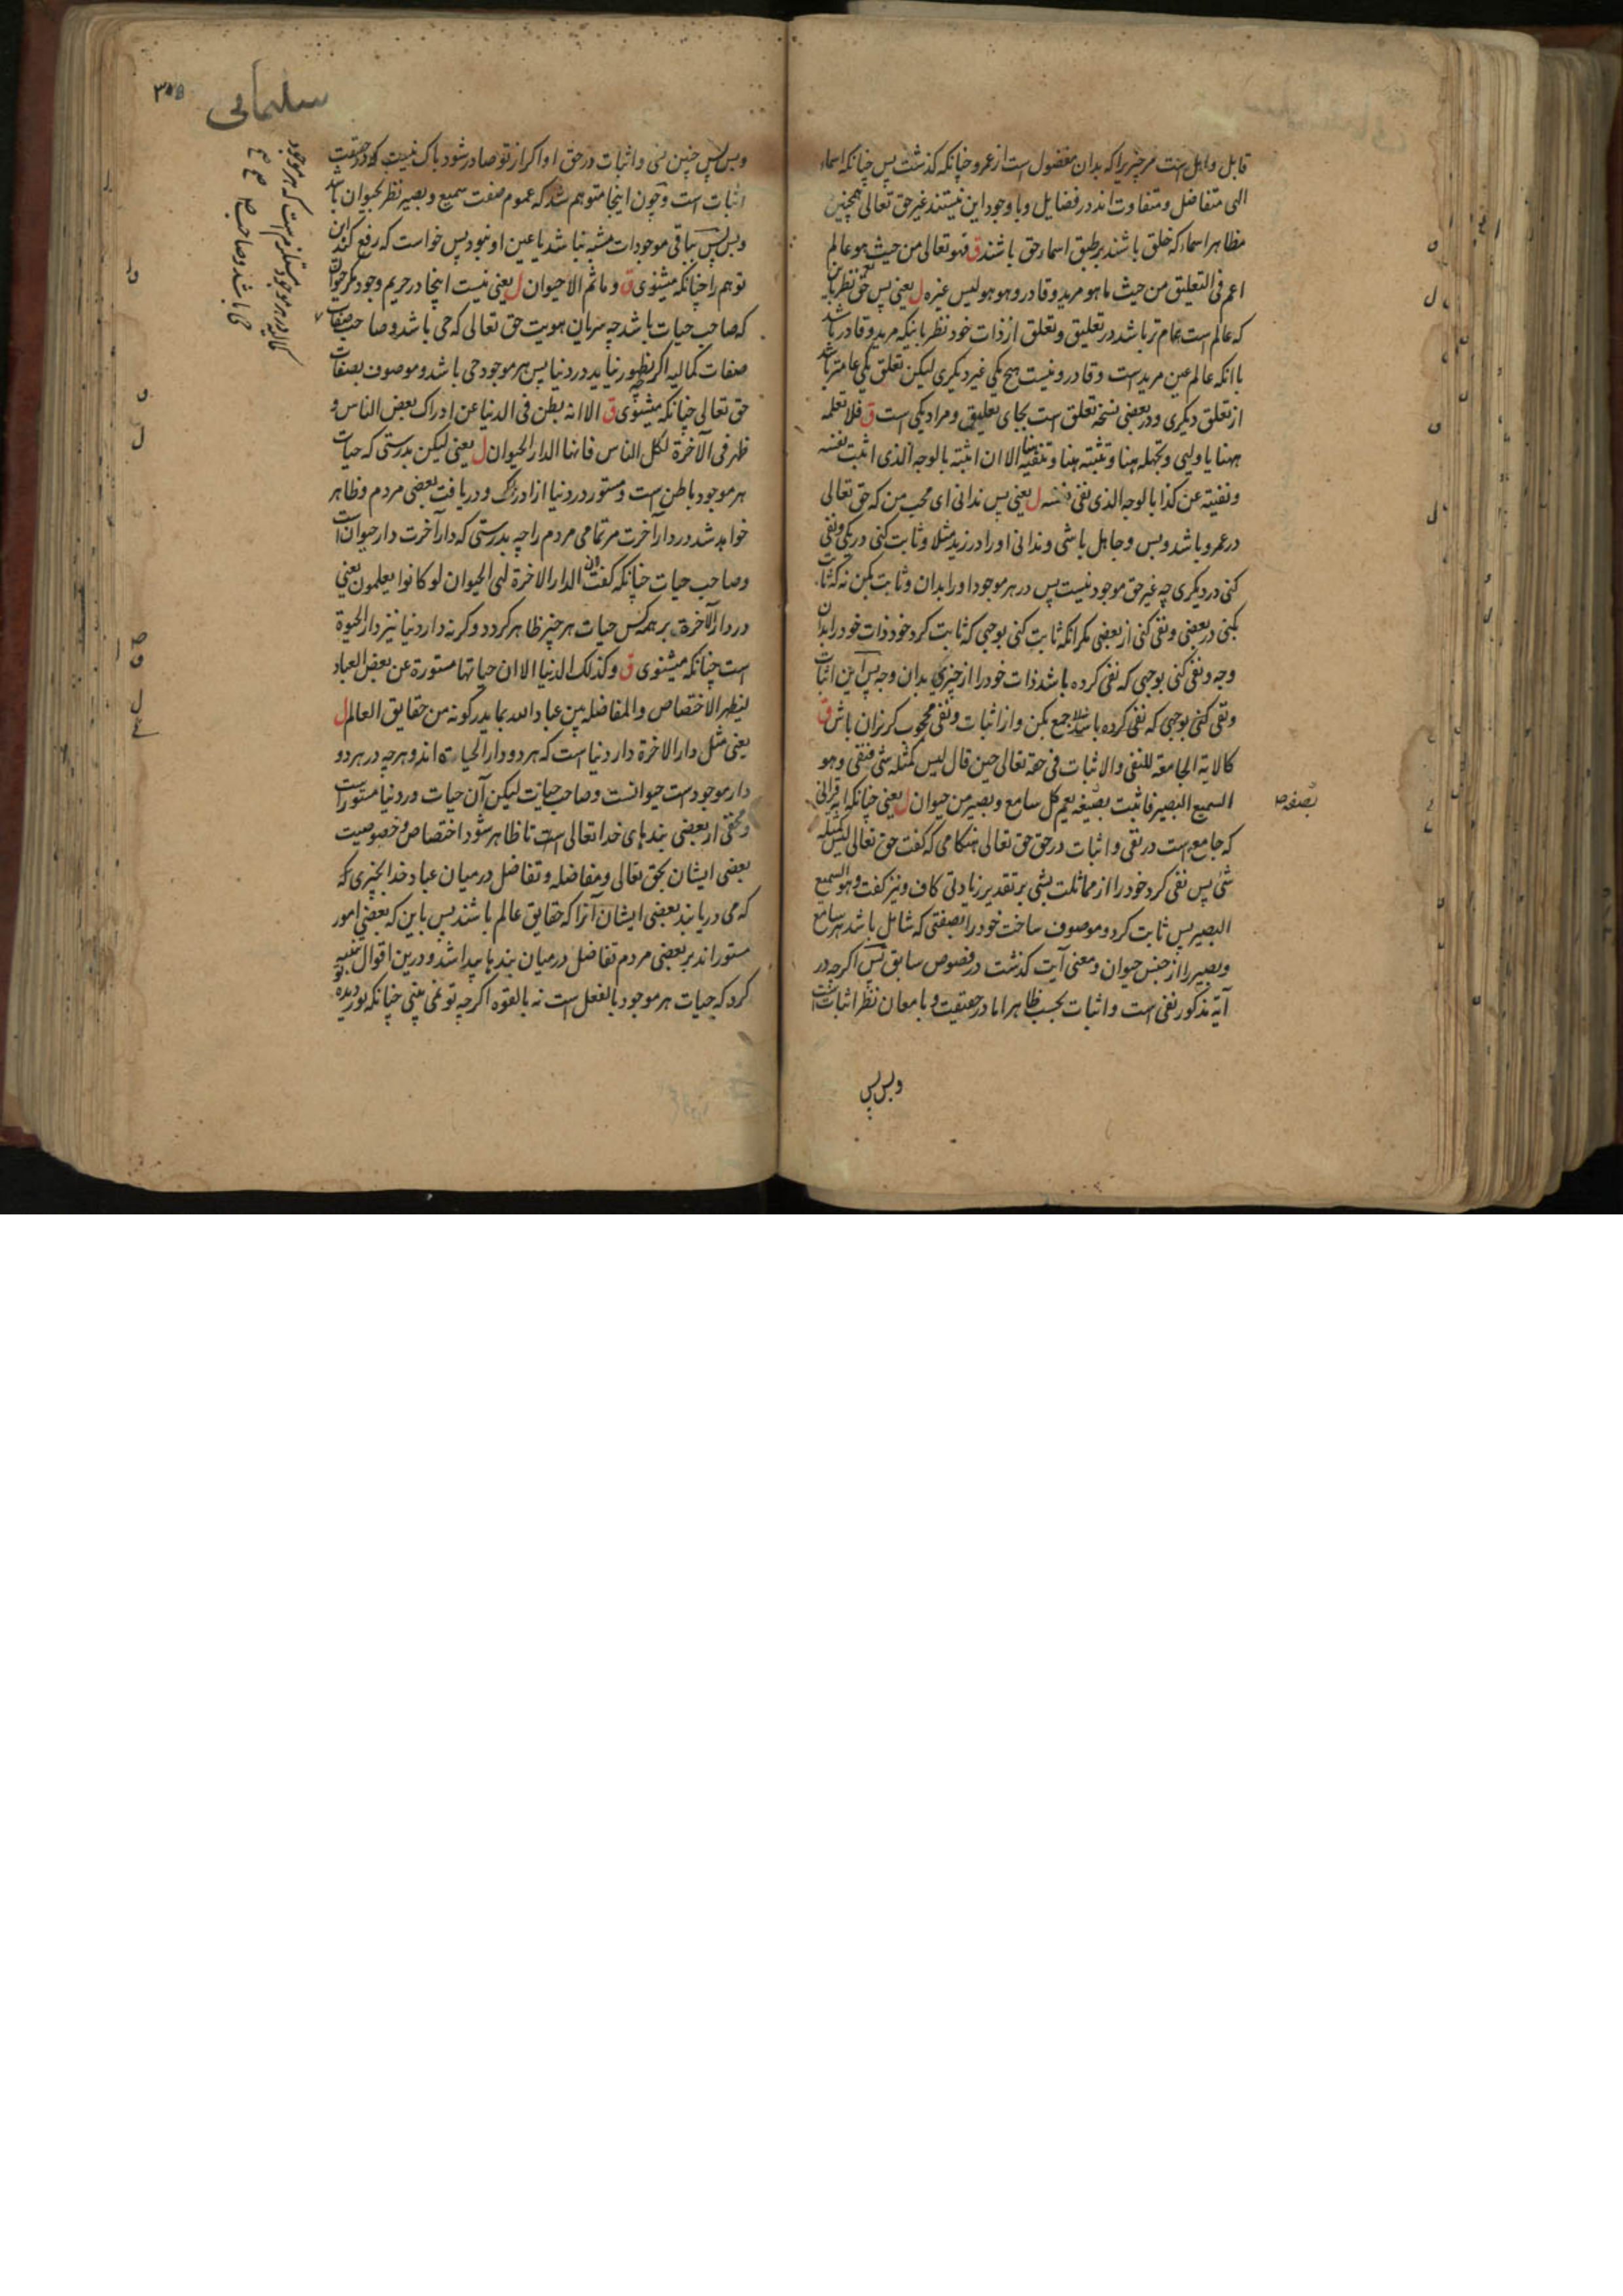 قابل و اهل است مر چیزیرا که بدان مفضول است از عمرو چنانکه گذشت پس چنانکه اسماء
الهی متفاضل و متفاوت اند در فضایل و با وجود این نیستند غیر حق تعالی همچنین
مظاهر اسما که خلق باشند بر طبق اسماء حق باشند ق فهو تعالی من حیث هو عالم
اعم فی التعلیق من حیث ما هو مرید و قادر و هو هو لیس غیره ل یعنی پس حق نظر باین
که عالم است تمام تر باشد در تعلیق و تعلق از ذات خود نظر باینکه مرید و قادر باشد
با انکه عالم عین مرید است و قادر و نیست هیچ یکی غیر دیگری لیکن تعلق یکی عامتر باشد
از تعلق دیگری و در بعضی نسخه تعلق است بجای تعلیق و مراد یکی است ق فلا تعلمه
ههنا یا ولیی و تجهله هنا و تثبته هنا و تنفیه هنا الا ان اثبته بالوجه الذی اثبت نفسه
و نفیته عن کذا بالوجه الذی نفی نفسه ل یعنی پس ندانی ای محب من که حق تعالی
در عمرو باشد و بس و جاهل باشی و ندانی او را در زید مثلا و ثابت کنی در یکی و نفی
کنی در دیگری چه غیر حق موجود نیست پس در هر موجود او را بدان و ثابت بکن نه که اثبات
بکنی در بعضی و نفی کنی از بعضی مکر انکه ثابت کنی بوجهی که ثابت کرد خود ذات خود را بدان
وجه و نفی کنی بوجهی که نفی کرده باشد ذات خود را از چیزی بدان وجه پس این اثبات
و نفی کنی بوجهی که نفی کرده باشد جمع بکن و از اثبات و نفی محجوب کریزان باش ق
کالایة الجامعة للنفی و الاثبات فی حقه تعالی حین قال لیس کمثله شی فنفی و هو
السمیع البصیر فاثبت بصفة یعم کل سامع و بصیر من حیوان ل یعنی چنانکه ایه قرانی
که جامع است در نفی و اثبات در حق حق تعالی هنکامی که گفت حق تعالی لیس کمثله
شی پس نفی کرد خود را از مماثلت بشی بر تقدیر زیادتی کاف و نیز گفت و هو السمیع
البصیر پس ثابت کرد و موصوف ساخت خود را بصفتی که شامل باشد هر سامع
و بصیر را از جنس حیوان و معنی آیت گذشت در فصوص سابق پس اگر چه در
آیه مذکور نفی است و اثبات بحسب ظاهر اما در حقیقت و با معان نظر اثبات است
و بس پس
بصفة ص
سلیمانی
۳۰۵
و بس پس چنین نفی و اثبات در حق او اگر از تو صادر شود باک نیست که در حقیقت
اثبات است و چون اینجا متوهم شد که عموم صفت سمیع و بصیر نظر بحیوان باشد
و بس پس بباقی موجودات مشبه نباشد یا عین او نبود پس خواست که رفع کند این
توهم را چنانکه میشنوی ق و ما ثم الا حیوان ل یعنی نیست اینجا در حریم وجود مکر حیوان
که صاحب حیات باشد چه سریان هویت حق تعالی که حی باشد و صاحب صفات
صفات کمالیه اگر بظهور نیاید در دنیا پس هر موجود حی باشد و موصوف بصفات
حق تعالی چنانکه میشنوی ق الا انه بطن فی الدنیا عن ادراک بعض الناس و
ظهر فی الآخرة لکل الناس فانها الدار الحیوان ل یعنی لیکن بدرستی که حیات
هر موجود باطن است و مستور در دنیا از ادراک و دریافت بعضی مردم و ظاهر
خواهد شد در دار آخرت مر تمامی مردم را چه بدرستی که دار آخرت دار حیوان است
و صاحب حیات چنانکه گفت ان الدار الاخرة لهی الحیوان لو کانوا یعلمون یعنی
در دار الآخرة بر همه کس حیات هر چیز ظاهر گردد و گرنه دار دنیا نیز دار الحیوة
است چنانکه میشنوی ق و کذلک الدنیا الا ان حیاتها مستورة عن بعض العباد
لیظهر الاختصاص و المفاضله بین عباد الله بما یدرکونه من حقایق العالم ل
یعنی مثل دار الاخرة دار دنیا است که هر دو دار الحیاة اند و هر چه در هر دو
دار موجود است حیوانست و صاحب حیات لیکن آن حیات در دنیا مستور است
و مخفی از بعضی بندهای خدا تعالی است تا ظاهر شود اختصاص و خصوصیت
بعضی ایشان بحق تعالی و مفاضله و تفاضل در میان عباد خدا بچیزی که
که می دریابند بعضی ایشان آنرا که حقایق عالم باشند پس باین که بعضی امور
مستور اند بر بعضی مردم تفاضل در میان بندها پیدا شد و درین اقوال تنبیه
کرد که حیات هر موجود بالفعل است نه بالقوه اگر چه تو نمی بینی چنانکه نور دیده
کمالیه در هر موجود مستلزم است که هر موجود
حی باشد و صاحب ص صح